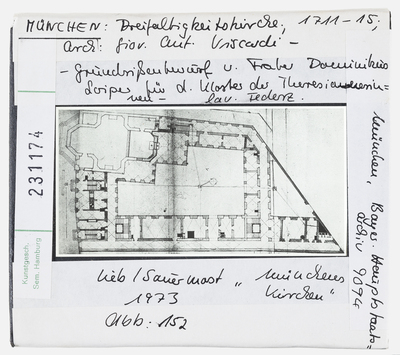 MÜNCHEN: Dreifaltigkeitskirche, 1711-15;
Arch: Giov. Ant. Viscardi -
- Grundrißentwurf v. Frater Dominikus
für d. Kloster der Theresianerin-
nen - lav. Federz.
München, Bayer. Hauptstaats-
archiv 9094
231174
Kunstgesch.
Sem. Hamburg
Lieb / Sauermost "Münchens
Kirchen"
1973
Abb: 152